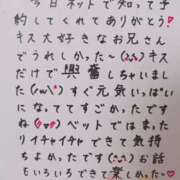 今日ネットで知って予
約してくれてありがとう!
キス大好きなお兄さん
でうれしかった〜(¨)キス
だけで興奮しちゃいまし
た(•^•)すぐ元気いっぱい
になっててすごかった
ですね(♥♥)ベットではまった
りイチャイチャできて気持
ちよかったです(¨)お話
もいろいろできて楽しかった〜♥